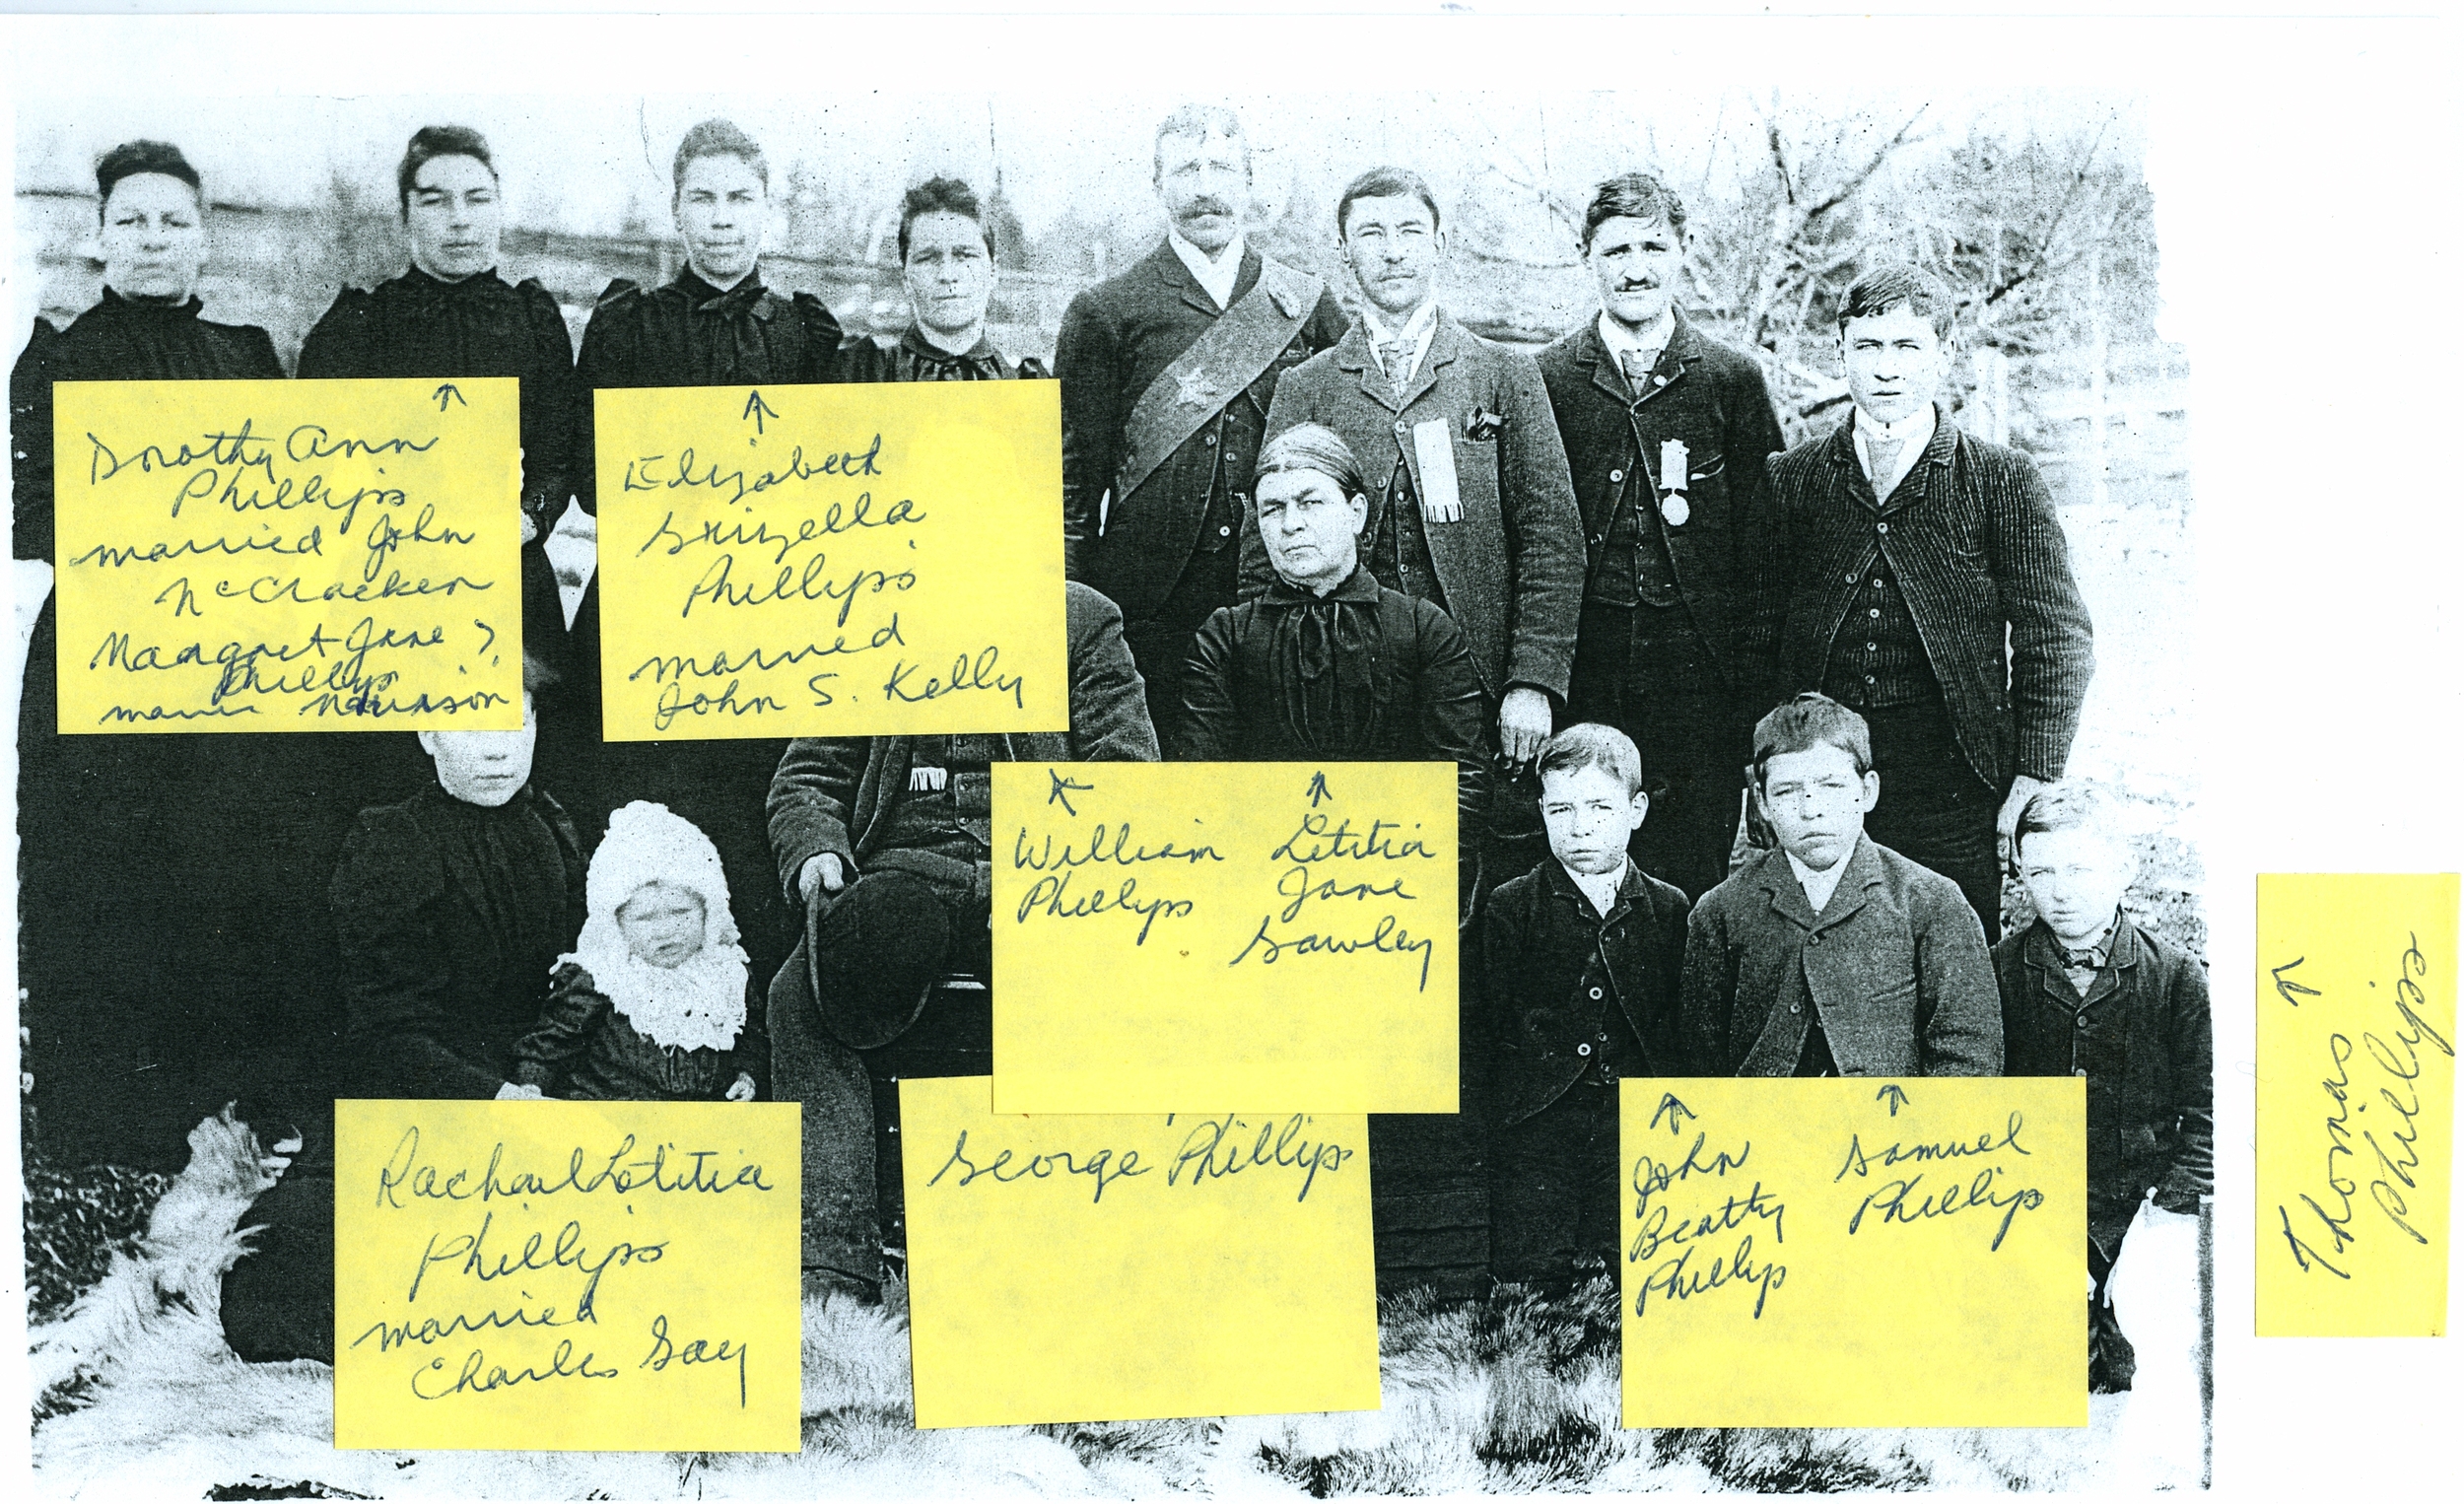 Dorothy Ann
Phillips
married John
McCracken
Margaret Jane ?
Phillips
Elizabeth
Grizella
Phillips
married
John S. Kelly
William Letitia
Phillips Jane
Gawley
Rachael Letitia
Phillips
married
Charles Gay
George Phillips
John Samuel
Beatty Phillips
Phillips
Thomas
Phillips